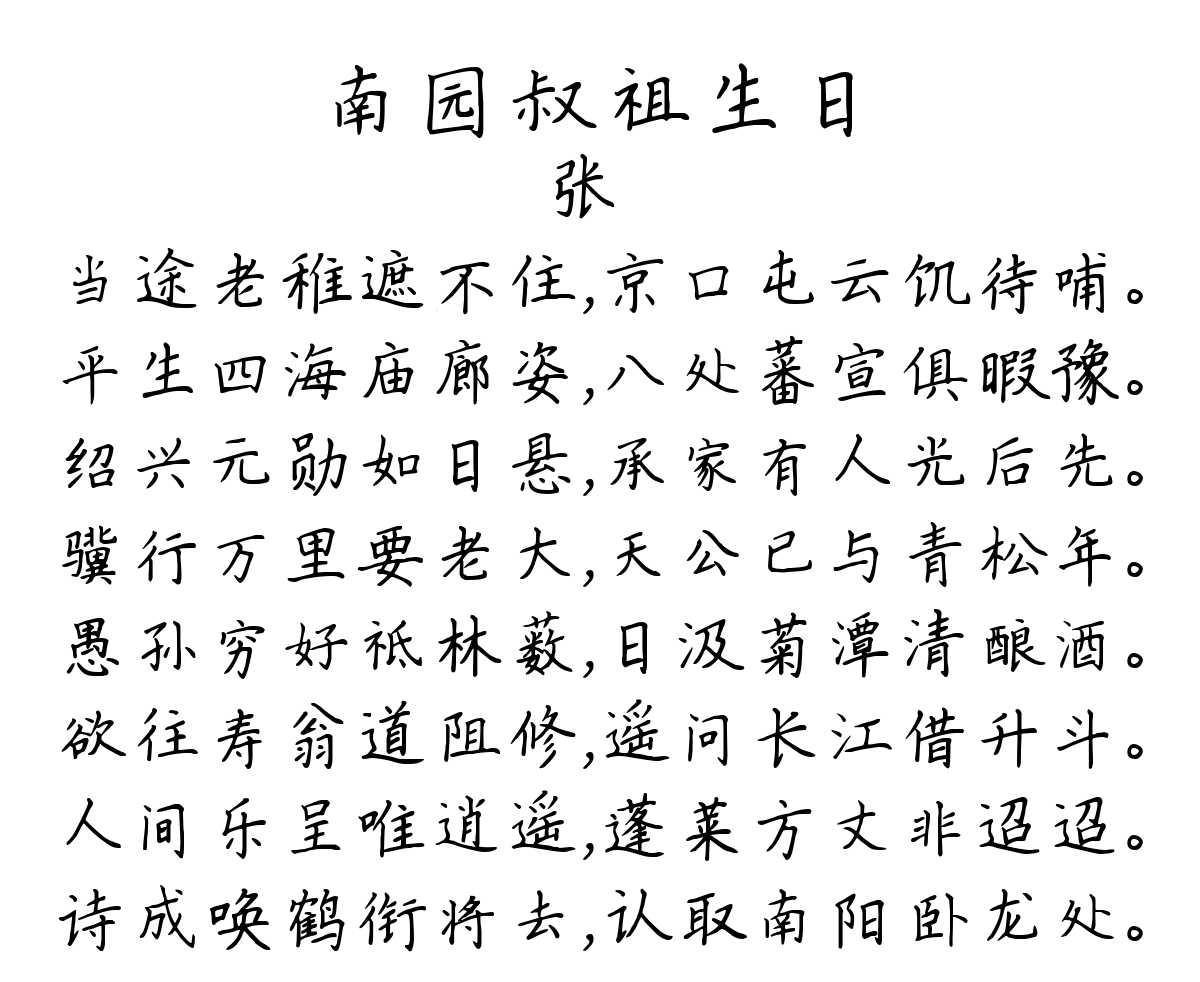 南园叔祖生日
张
当途老稚遮不住,京口屯云饥待哺。
平生四海庙廊姿,八处蕃宣俱暇豫。
绍兴元勋如日悬,承家有人光后先。
骥行万里要老大,天公已与青松年。
愚孙穷好祗林薮,日汲菊潭清酿酒。
欲往寿翁道阻修,遥问长江借升斗。
人间乐呈唯逍遥,蓬莱方丈非迢迢。
诗成唤鹤衔将去,认取南阳卧龙处。